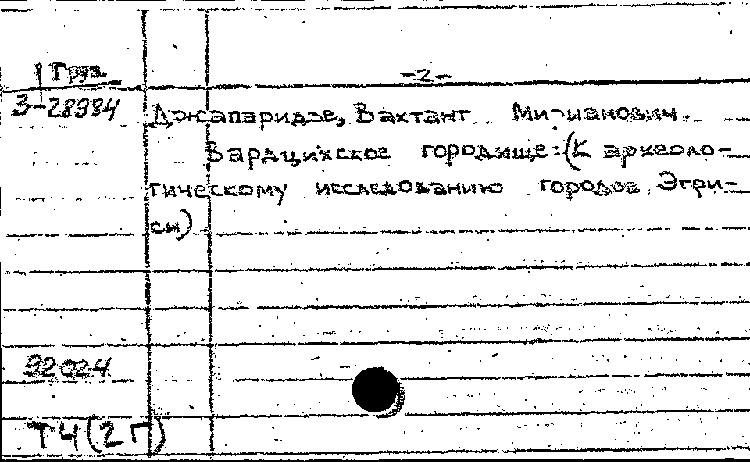 Груз.
-2-
З-28984
Джапаридзе, Вахтанг
Вардцихское городище: (К археоло-
гическому исследованию городов Эгри-
си)
92024
ТЧ(2Г)